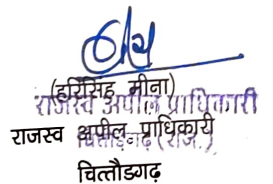 (हरिसिंह मीना)
राजस्व अपील प्राधिकारी
राजस्व अपील प्राधिकारी
चित्तौड़गढ़ (राज.)
चित्तौडगढ़